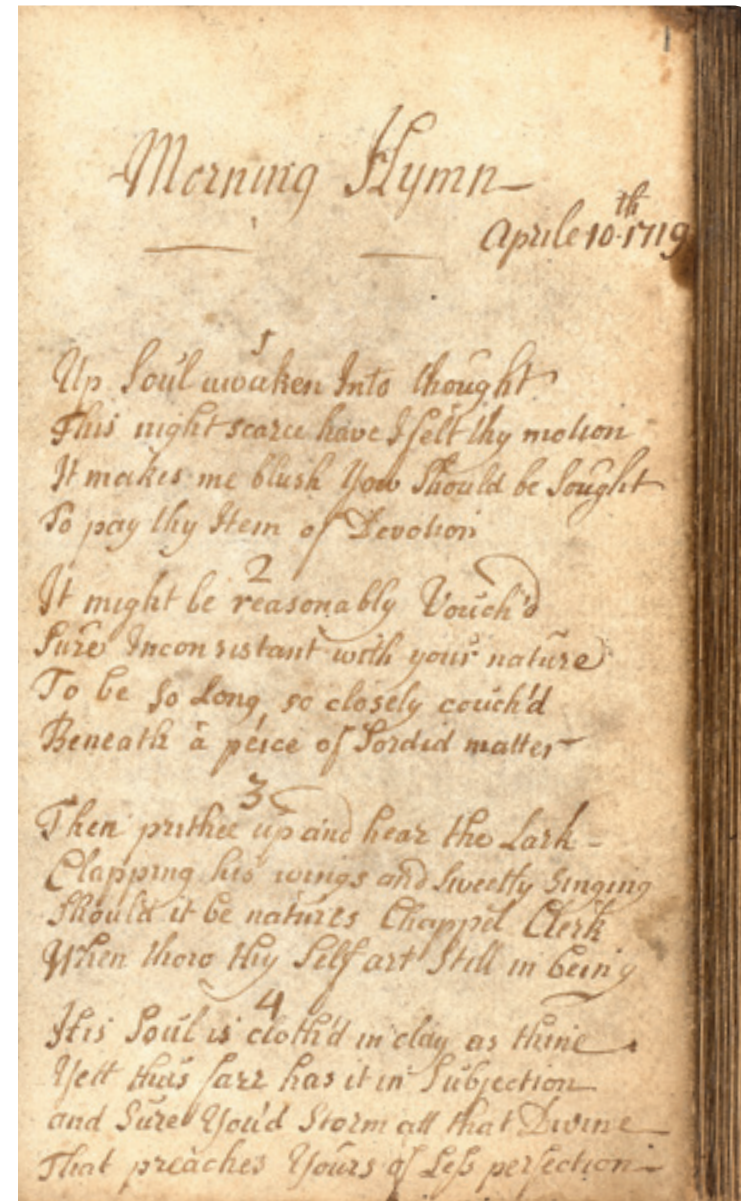 1
Morning Hymn
Aprile 10th 1719
1
Up Soul awaken Into thought
This night scarce have I felt thy motion
It makes me blush You Should be Sought
To pay thy Item of Devotion
2
It might be reasonably Vouch'd
Sure Inconsistant with your nature
To be So Long, so closely couch'd
Beneath a peice of Sordid matter
3
Then prithee up and hear the Lark
Clapping his wings and Sweetly Singing
Should it be natures Chappel Clerk
When thow thy Self art Still in being
4
His Soul is cloth'd in clay as thine
Yett thus farr has it in Subjection
and Sure You'd Storm att that Divine
That preaches Yours of Less perfection